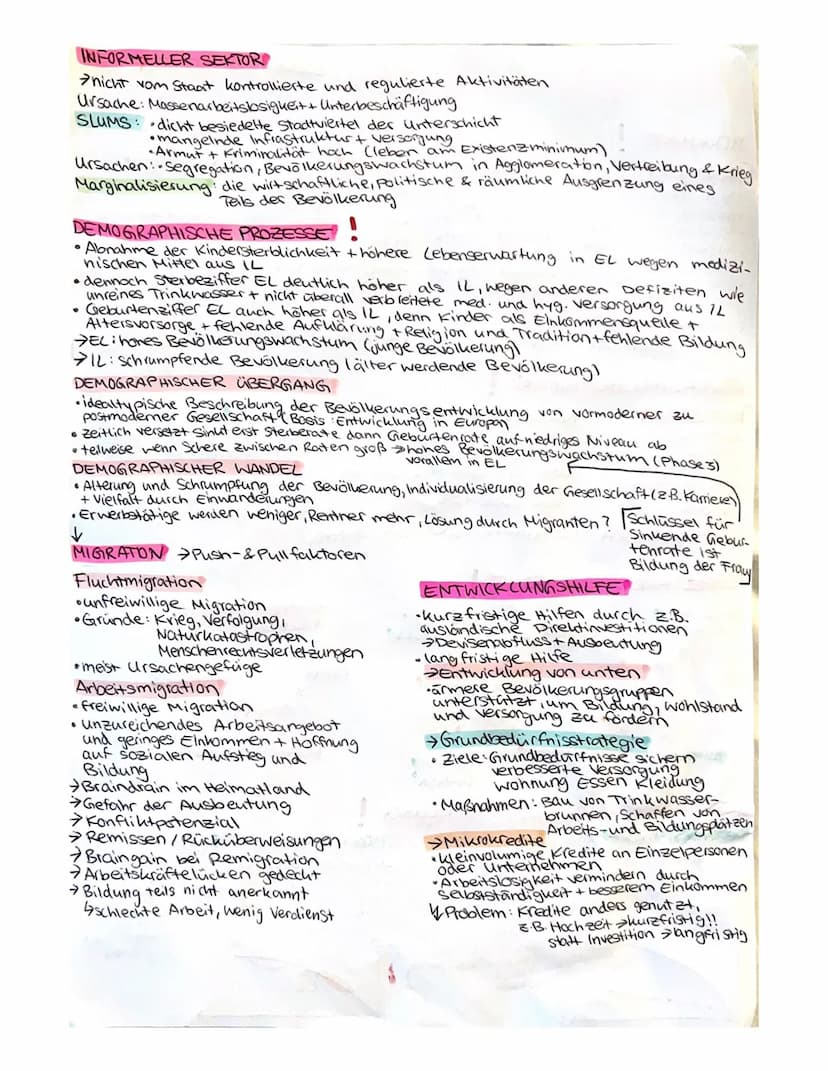 INFORMELLER SEKTOR
→nicht vom Staat kontrollierte und regulierte Aktivitäten
Ursache: Massenarbeitslosigkeit + Unterbeschäftigung
SLUMS: • dicht besiedelte Stadtviertel der Unterschicht
• mangelnde Infrastruktur + Versorgung
• Armut + Kriminalität hoch (leben am Existenzminimum)
Ursachen: • Segregation, Bevölkerungswachstum in Agglomeration, Vertreibung & Krieg
Marginalisierung: die wirtschaftliche, politische & räumliche Ausgrenzung eines
Teils der Bevölkerung
DEMOGRAPHISCHE PROZESSE !
• Abnahme der Kindersterblichkeit + höhere Lebenserwartung in EL wegen medizi-
nischen Mittel aus IL
• dennoch Sterbeziffer EL deutlich höher als IL, wegen anderen Defiziten wie
unreines Trinkwasser + nicht überall verbreitete med. und hyg. Versorgung aus IL
• Geburtenziffer EL auch höher als IL, denn Kinder als Einkommensquelle +
Altersvorsorge + fehlende Aufklärung + Religion und Tradition + fehlende Bildung
→EL: hohes Bevölkerungswachstum (junge Bevölkerung)
→IL: schrumpfende Bevölkerung (älter werdende Bevölkerung)
DEMOGRAPHISCHER ÜBERGANG
• idealtypische Beschreibung der Bevölkerungsentwicklung von vormoderner zu
postmoderner Gesellschaft (Basis: Entwicklung in Europa)
• zeitlich versetzt sinkt erst Sterberate dann Geburtenrate auf niedriges Niveau ab
• teilweise wenn Schere zwischen Raten groß → hohes Bevölkerungswachstum (Phase 3)
vorallem in EL
DEMOGRAPHISCHER WANDEL
• Alterung und Schrumpfung der Bevölkerung, Individualisierung der Gesellschaft (z.B. Karriere)
+ Vielfalt durch Einwanderungen
• Erwerbstätige werden weniger, Rentner mehr, Lösung durch Migranten?
Schlüssel für
sinkende Gebur-
tenrate ist
Bildung der Frau
↓
MIGRATON → Push- & Pullfaktoren
Fluchtmigration
• unfreiwillige Migration
• Gründe: Krieg, Verfolgung,
Naturkatastrophen,
Menschenrechtsverletzungen
• meist Ursachengefüge
Arbeitsmigration
• freiwillige Migration
• unzureichendes Arbeitsangebot
und geringes Einkommen + Hoffnung
auf sozialen Aufstieg und
Bildung
→Braindrain im Heimatland
→Gefahr der Ausbeutung
→Konfliktpotenzial
→Remissen / Rücküberweisungen
→Braingain bei Remigration
→Arbeitskräftelücken gedeckt
→Bildung teils nicht anerkannt
↳schlechte Arbeit, wenig Verdienst
ENTWICKLUNGSHILFE
• kurzfristige Hilfen durch z.B.
ausländische Direktinvestitionen
→Devisenabfluss + Ausbeutung
• langfristige Hilfe
→Entwicklung von unten
• ärmere Bevölkerungsgruppen
unterstützt, um Bildung, Wohlstand
und Versorgung zu fördern
→Grundbedürfnisstrategie
• Ziele: Grundbedürfnisse sichern
verbesserte Versorgung
Wohnung Essen Kleidung
• Maßnahmen: Bau von Trinkwasser-
brunnen, Schaffen von
Arbeits- und Bildungsplätzen
→Mikrokredite
• kleinvolumige Kredite an Einzelpersonen
oder Unternehmen
• Arbeitslosigkeit vermindern durch
Selbstständigkeit + besserem Einkommen
↯Problem: Kredite anders genutzt,
z.B. Hochzeit → kurzfristig!!
statt Investition → langfristig